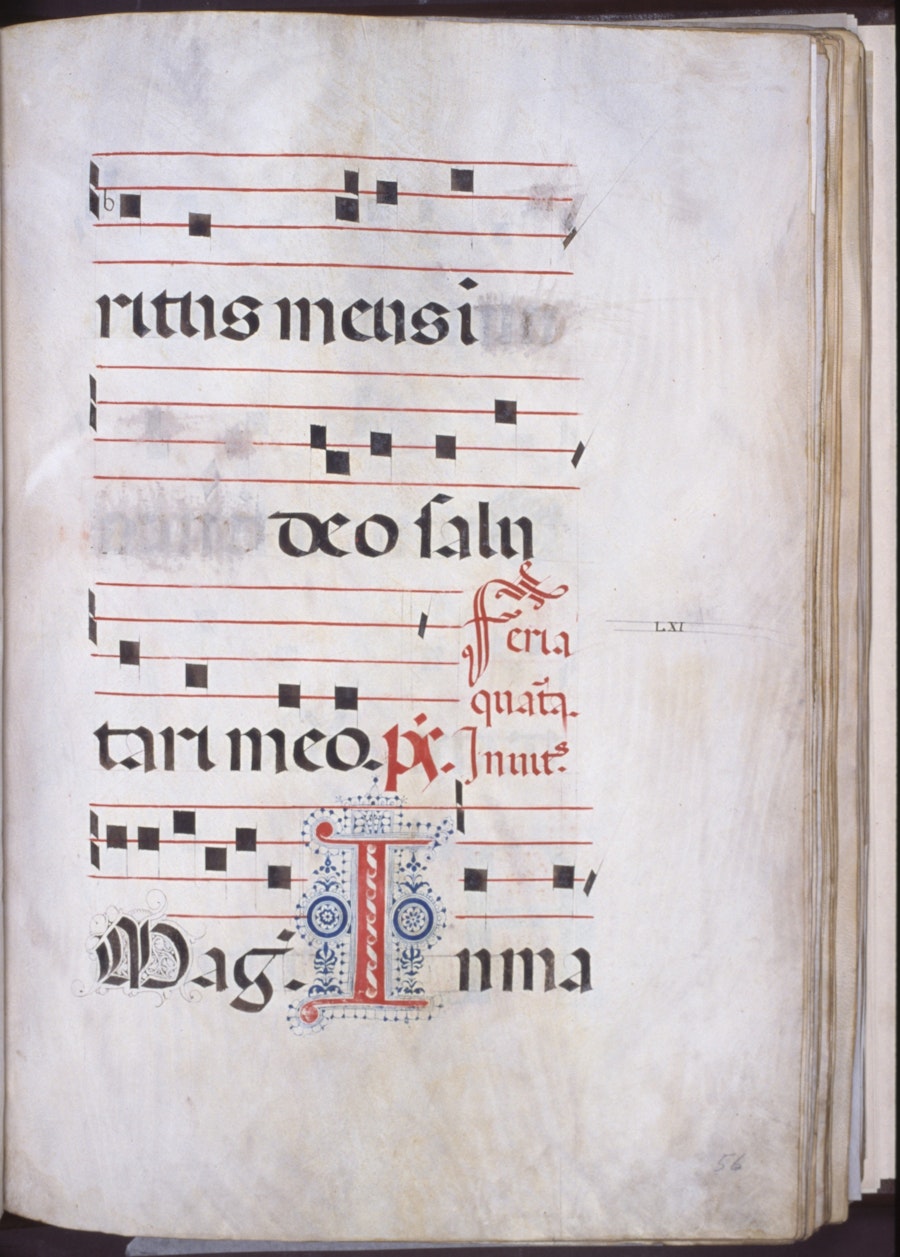 ritus meus i
deo salu
tari meo.
Feria
quarta.
LXI
Inuit.
Mag. Inma
56